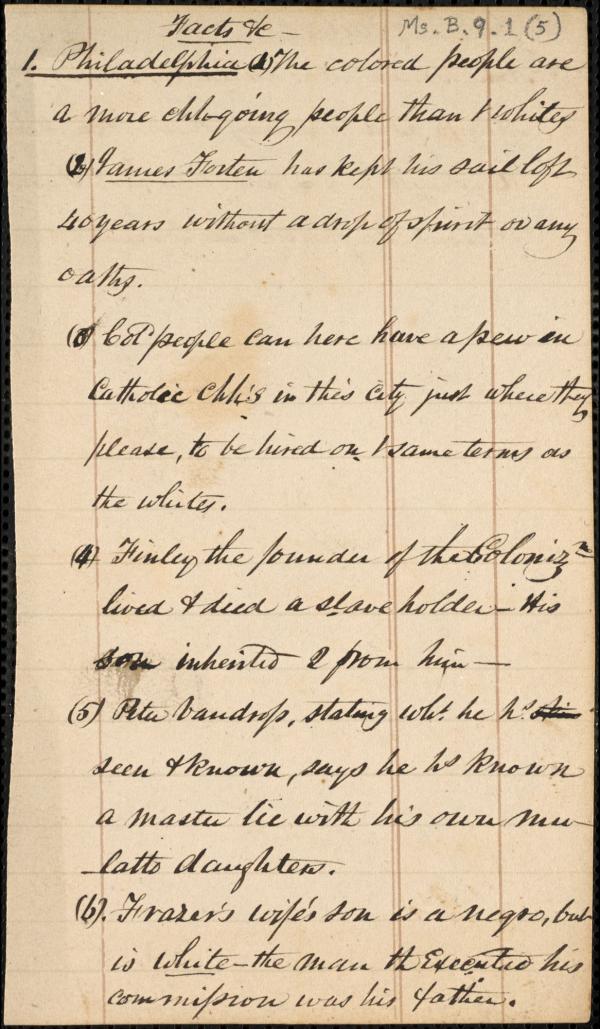 Facts &c —
Ms. B. 9. 1 (5)
1. Philadelphia (1) The colored people are
a more chh-going people than t whites
(2) James Forten has kept his sail loft
40 years without a drop of spirit or any
oaths.
(3) Col'd people can here have a pew in
Catholic Chh's in this City just where they
please, to be hired on t same terms as
the whites.
(4) Finley the founder of the Coloniz'n
lived & died a slave holder — His
son inherited 2 from him —
(5) Peter Vandross, stating wht. he hs.
seen & known, says he hs known
a master lie with his own mu-
latto daughters.
(6). Frazer's wife's son is a negro, but
is white — the man tht Executed his
commission was his father.